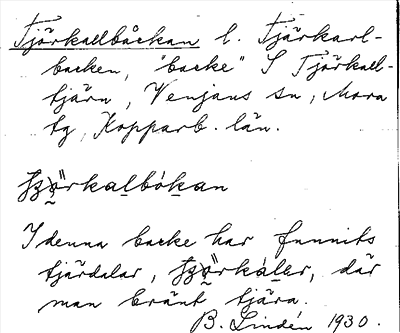 Tjörkallbåckan l. Tjärkarl-
backen, "backe" S Tjärkall-
tjärn, Venjans sn, Mora
tg, Kopparb. län.
I denna backe har funnits
tjärdalar, där
man bränt tjära.
B. Lindén 1930.